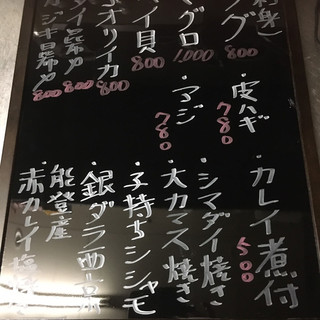 刺身)
フグ 800
マグロ 1,000
イ貝 800
アオリイカ 800
ダイ昆布〆 800
カジキ昆布〆 800
・皮ハギ 780
・アジ 780
・カレイ煮付 500
・シマダイ焼き
・大カマス焼き
・子持ちシシャモ
・銀ダラ西京
能登産
赤カレイ塩焼